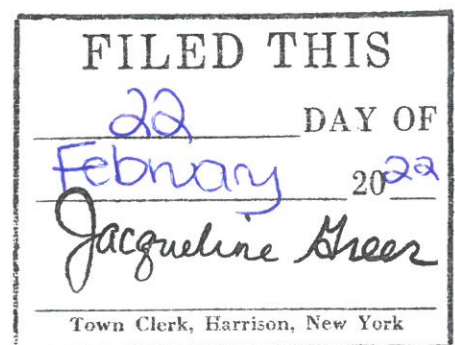 FILED THIS
22 DAY OF
February 2022
Jacqueline Greer
Town Clerk, Harrison, New York